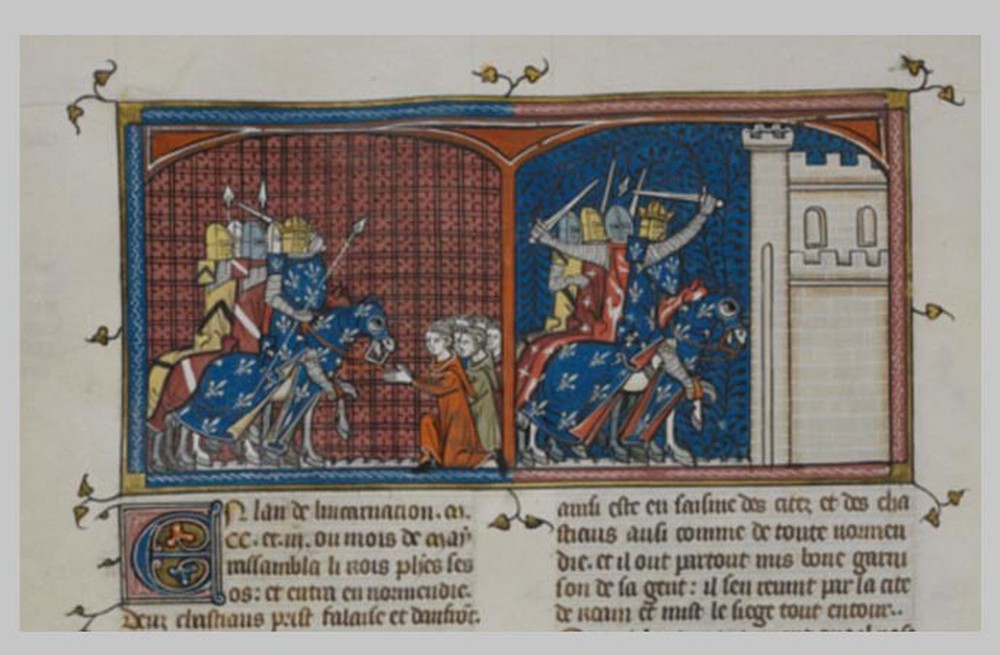 En lan de lincarnation. m.
CC. et .iii. ou mois de may
assambla li rois phes ses
os: et entra en normendie.
Deux chastiaus prist falaise et danfrot.
ausi este en saisine des citez et des cha
stiaus ausi comme de toute normen
die. et il out partout mis bone garni
son de sa gent: il sen revint par la cite
de roam et mist le siege tout entour..